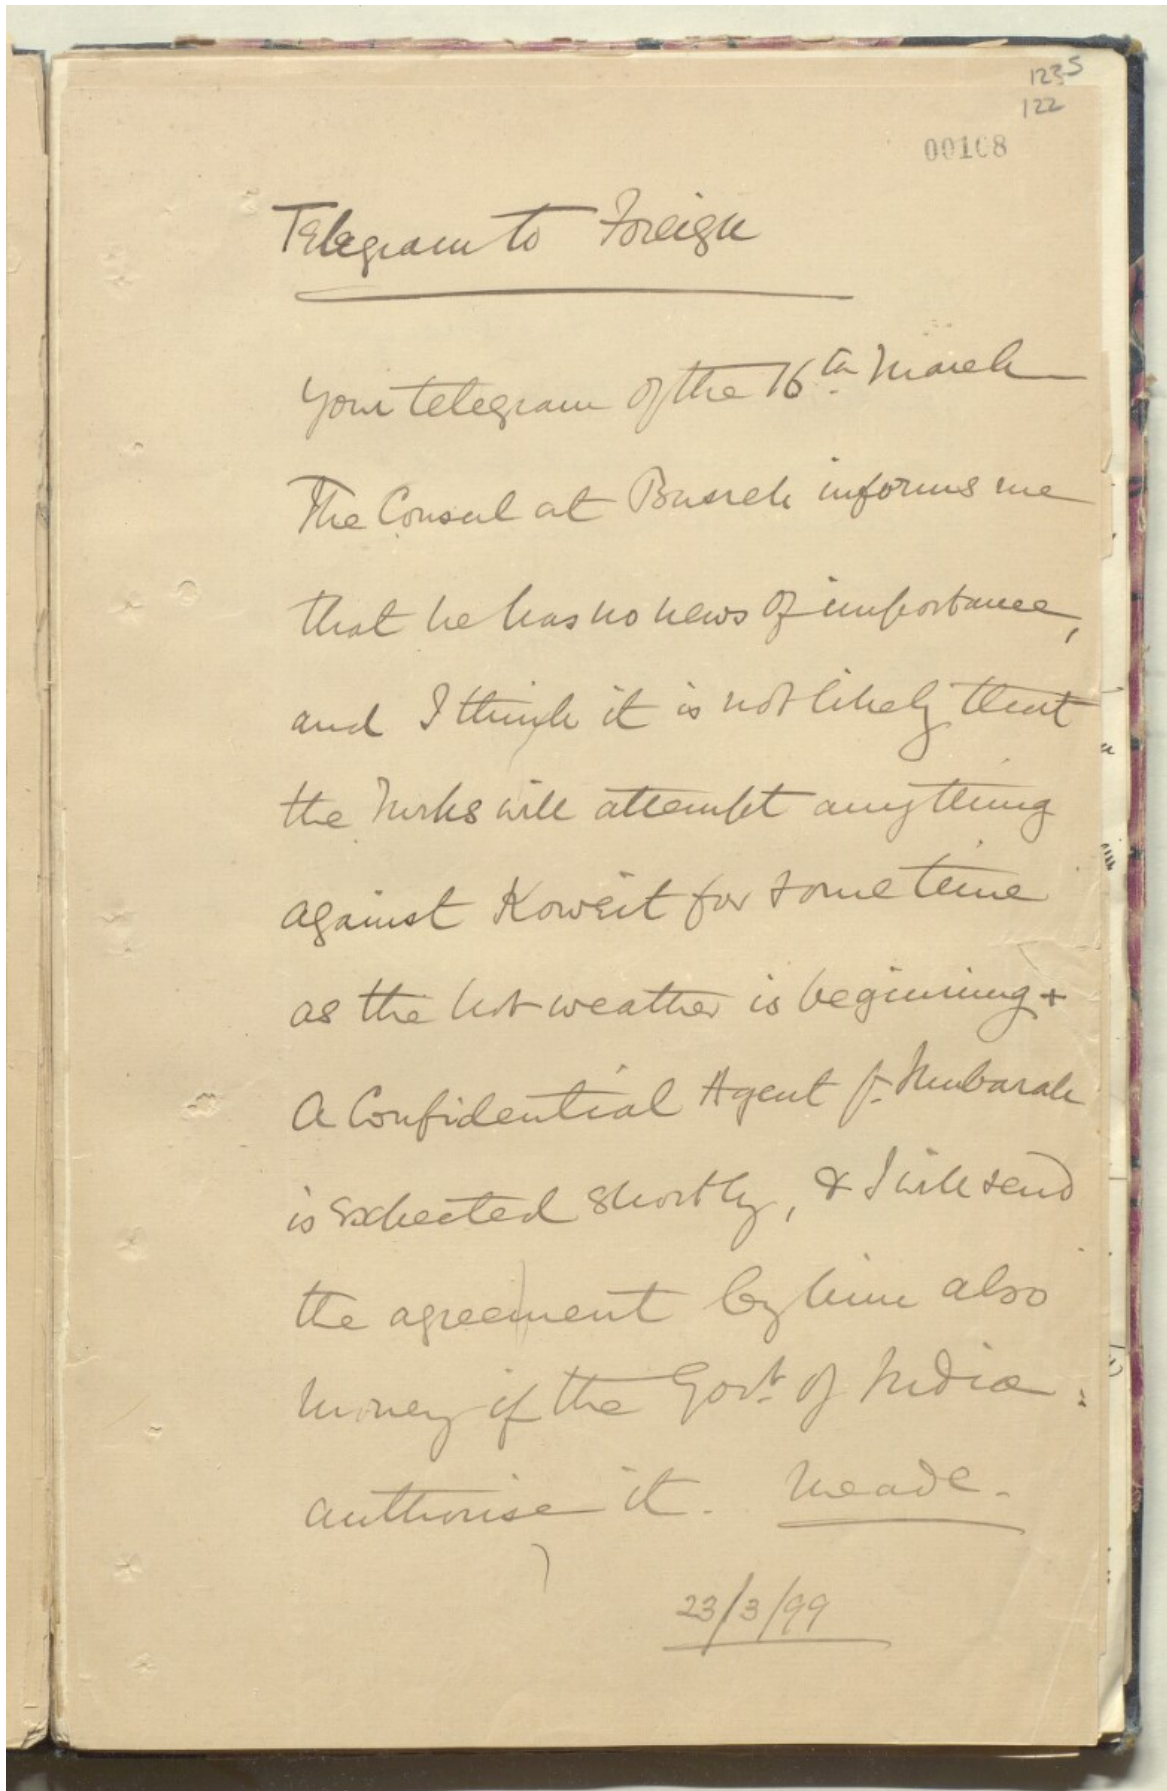 1235
122
00108
Telegram to Foreign
Your telegram of the 16th March
The Consul at Busreh informs me
that he has no news of importance,
and I think it is not likely that
the Turks will attempt anything
against Koweit for some time
as the hot weather is beginning +
A Confidential Agent f. Mubarak
is expected shortly, & I will send
the agreement by him also
money if the Govt. of India
authorise it. Meade.
23/3/99